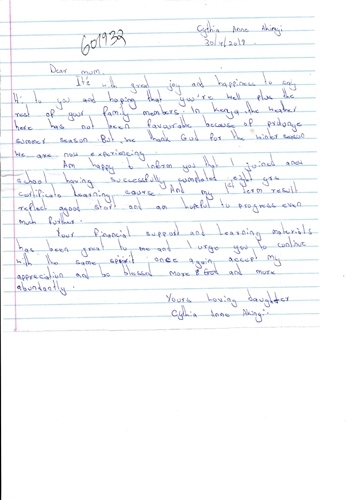 601933
Cythia Anne Akinyi
30/4/2019.
Dear mum.
It's with great joy and happiness to say
Hi to you and hoping that you're well plus the
rest of your family members. In kenya the weather
here has not been favourable because of prolonge
summer season But, we thank God for the winter season
we are now experiencing.
Am happy to inform you that I joined anew
school having successfully completed eight yrs
certificate learning course And my 1st term result
reflect agood start and am hopeful to progress even
much further.
Your Financial support and Learning materials
has been great to me and I urge you to continue
with the same spirit once again accept my
appreciation and be blessed more God and more
abundantly.
Yours loving daughter
Cythia Anne Akinyi.